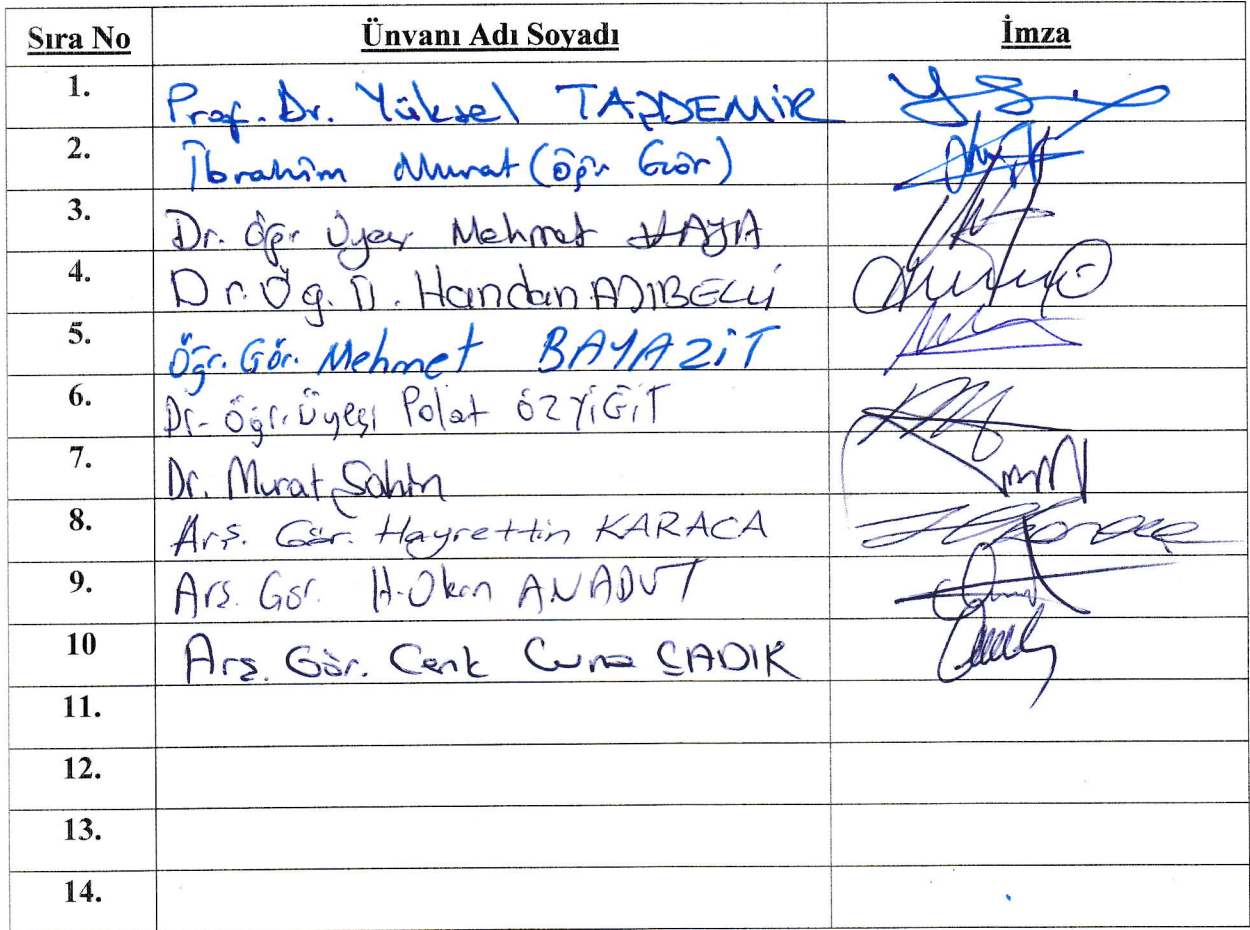 Sıra No Ünvanı Adı Soyadı İmza
1. Prof. Dr. Yüksel TAŞDEMİR
2. İbrahim Murat (Öğr Gör)
3. Dr. Öğr Üyesi Mehmet
4. Dr. Öğ. Ü. Handan ADIBELLİ
5. Öğr. Gör. Mehmet BAYAZİT
6. Dr. Öğr. Üyesi Polat ÖZYİĞİT
7. Dr. Murat Şahin
8. Arş. Gör. Hayrettin KARACA
9. Arş. Gör. H. Okan
10 Arş. Gör. Cenk Cuma ÇADIK
11.
12.
13.
14.